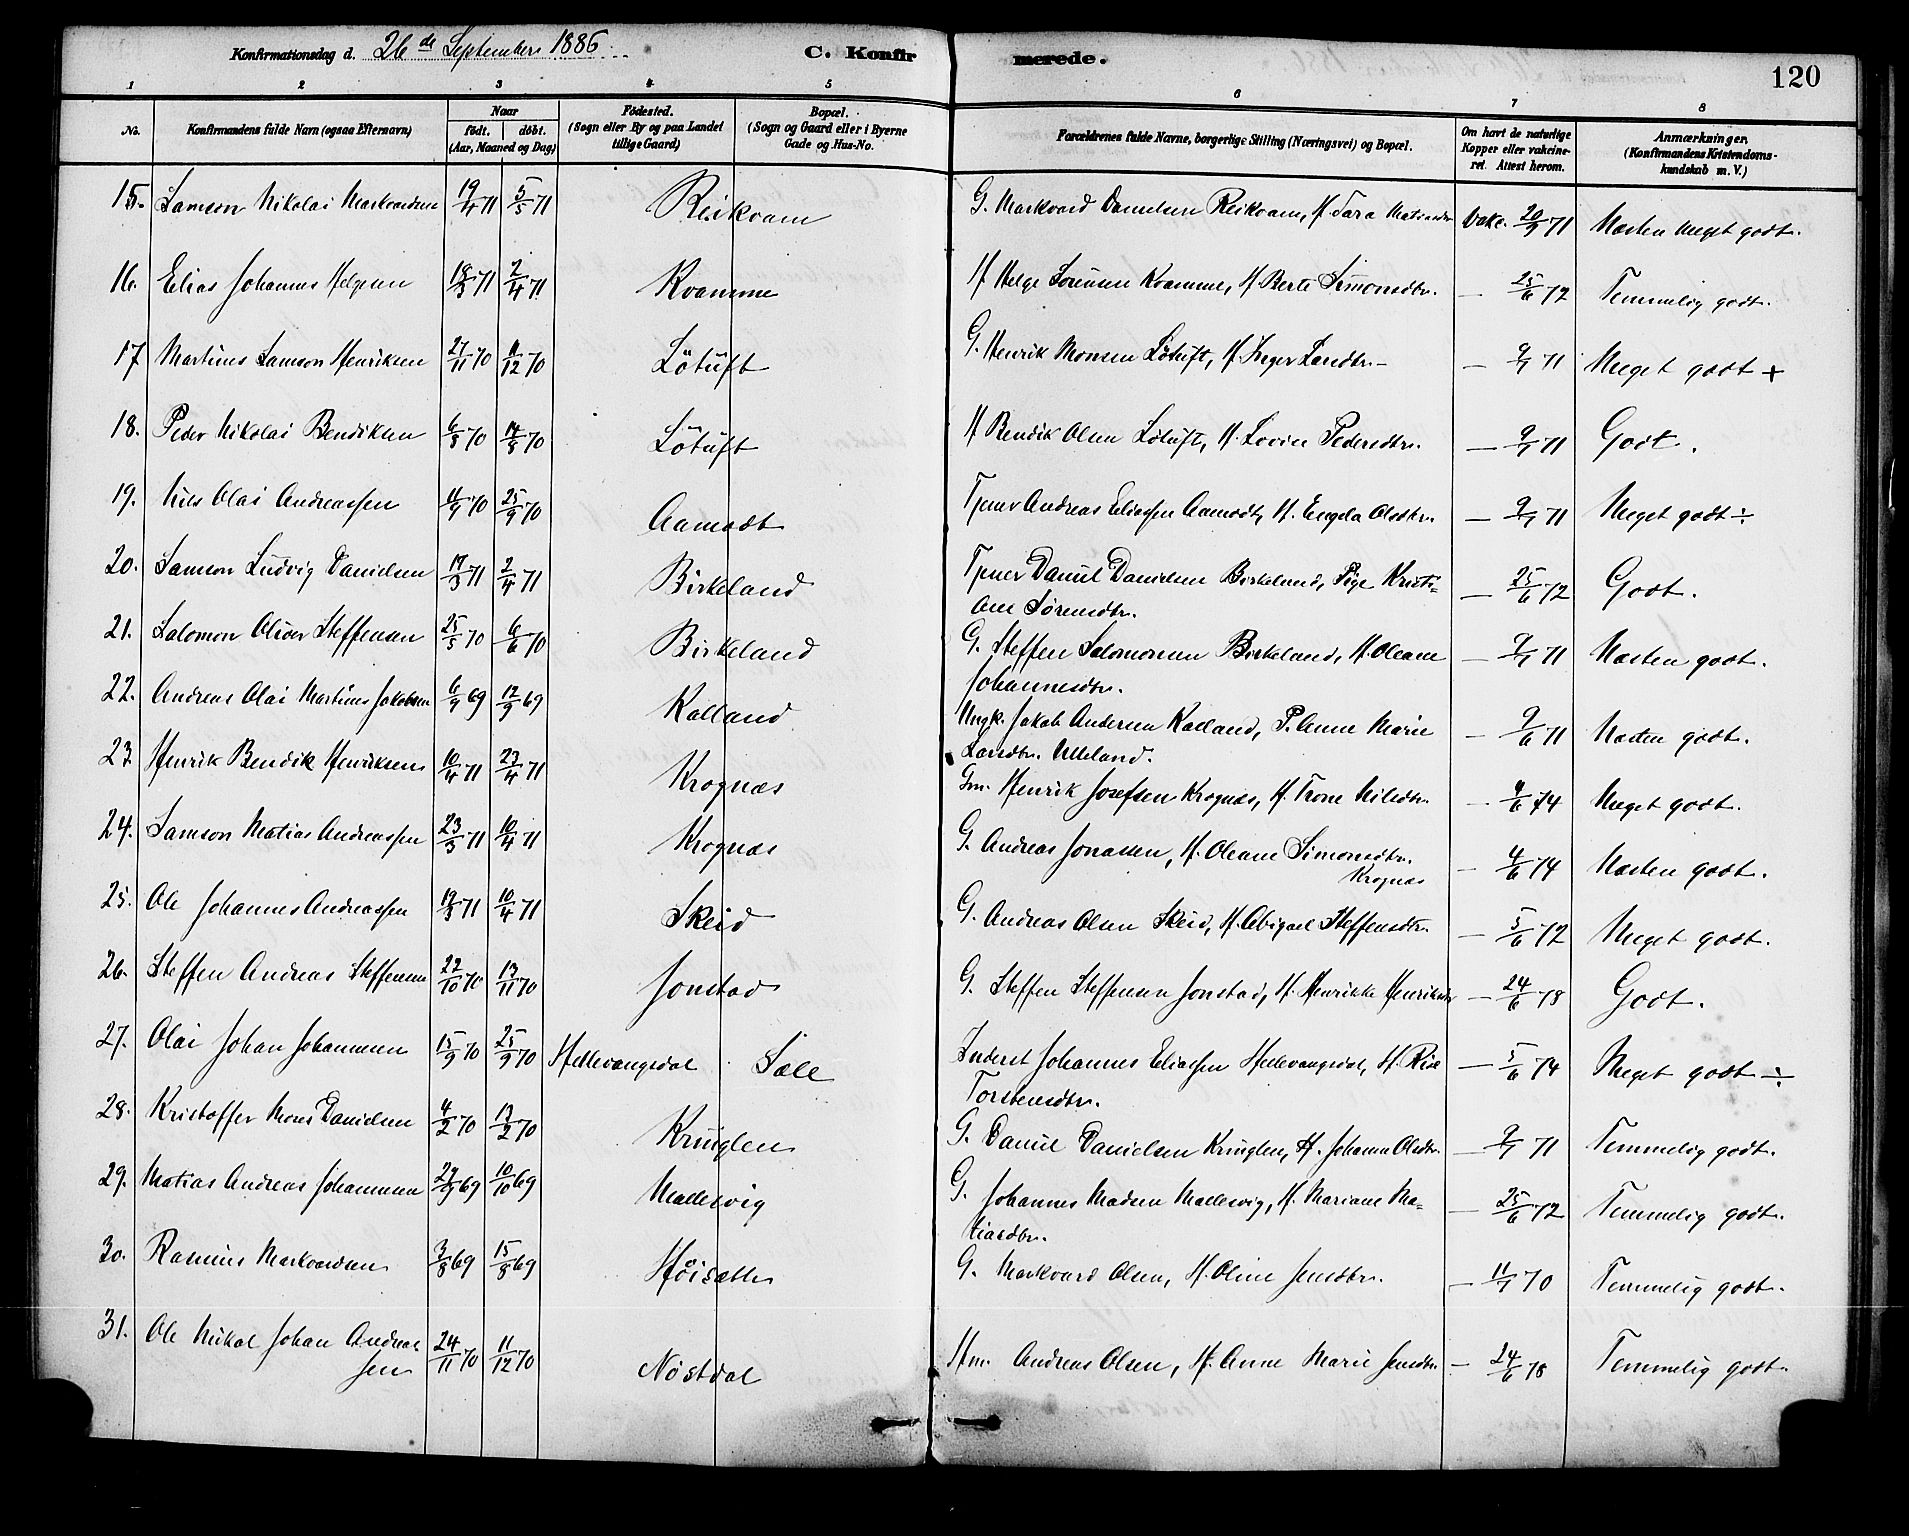 Konfirmationsdag d. 26de September 1886 C. Konfirmerede. 120
1 2 3 4 5 6 7 8
No. Konfirmandens fulde Navn (ogsaa Efternavn) Naar født. døbt. (Aar, Maaned og Dag) Fødested. (Sogn eller By og paa Landet tillige Gaard) Bopæl. (Sogn og Gaard eller i Byerne Gade og Hus-No. Forældrenes fulde Navne, borgerlige Stilling (Næringsvei) og Bopæl. Om havt de naturlige Kopper eller vakcineret. Attest herom. Anmærkninger. (Konfirmandens Kristendomskundskab m. V.)
15. Samson Nikolai Markvardsen 19/4 71 5/5 71 Reikvam G. Markvard Danielsen Reikvam, H. Sara Matiasdtr Vakc. 20/9 71 Næsten meget godt.
16. Elias Johannes Helgesen 18/3 71 2/4 71 Kvamme H Helge Sørensen Kvamme, H. Berte Simonsdtr. — 25/6 72 Temmelig godt.
17 Martinus Samson Henriksen 27/11 70 11/12 70 Løtuft G. Henrik Monsen Løtuft, H. Inger Larsdtr. — 9/7 71 Meget godt +
18. Peder Nikolai Bendiksen 6/8 70 14/8 70 Løtuft H Bendik Olsen Løtuft, H. Lovise Pedersdtr. — 9/7 71 Godt.
19. Nils Olai Andreassen 11/9 70 25/9 70 Aamodt Tjener Andreas Eliassen Aamodt, H. Engela Olsdtr. — 9/7 71 Meget godt ÷
20. Samson Ludvig Danielsen 19/3 71 2/4 71 Birkeland Tjener Daniel Danielsen Birkeland, Pige Kristi-
ane Sørensdtr. — 25/6 72 Godt.
21. Salomon Oliver Steffensen 25/5 70 6/6 70 Birkeland G. Steffen Salomonsen Birkeland, H. Oleane
Johannesdtr. — 9/7 71 Næsten godt.
22. Andreas Olai Martinus Jakobsen 6/9 69 12/9 69 Kalland Ungk. Jakob Andersen Kalland, P. Anne Marie
Larsdtr. Ulleland. — 9/6 71 Næsten godt.
23 Henrik Bendik Henriksen 10/4 71 23/4 71 Krognæs Gm. Henrik Josefsen Krognæs, H. Trone Nilsdtr. — 4/6 74 Meget godt.
24. Samson Matias Andreassen 23/3 71 10/4 71 Krognæs G. Andreas Jonassen, H. Oleane Simonsdtr.
Krognæs — 4/6 74 Næsten godt.
25. Ole Johannes Andreassen 19/3 71 10/4 71 Skeid G. Andreas Olsen Skeid, H. Abigael Steffensdtr. — 5/6 72 Meget godt.
26. Steffen Andreas Steffensen 22/10 70 13/11 70 Jonstad G. Steffen Steffensen Jonstad, H. Henrikke Henriksdtr — 24/6 78 Godt.
27. Olai Johan Johannesen 15/9 70 25/9 70 Hellevangsdal Sæle Inderst Johannes Eliassen Hellevangsdal, H. Rise
Torstensdtr. — 5/6 74 Meget godt ÷
28. Kristoffer Mons Danielsen 4/2 70 13/2 70 Kringlen G. Daniel Danielsen Kringlen, H. Johanne Olsdtr. — 9/7 71 Temmelig godt.
29. Matias Andreas Johannesen 22/9 69 10/10 69 Mallesvig G. Johannes Madsen Mallesvig, H. Mariane Ma-
tiasdtr. — 25/6 72 Temmelig godt.
30. Rasmus Markvardsen 3/8 69 15/8 69 Høisæter G. Markvard Olsen, H. Oline Jensdtr. — 11/7 70 Temmelig godt.
31. Ole Mikal Johan Andreas
sen 24/11 70 11/12 70 Nøstdal Hm. Andreas Olsen, H. Anne Marie Jensdtr. — 24/6 78 Temmelig godt.